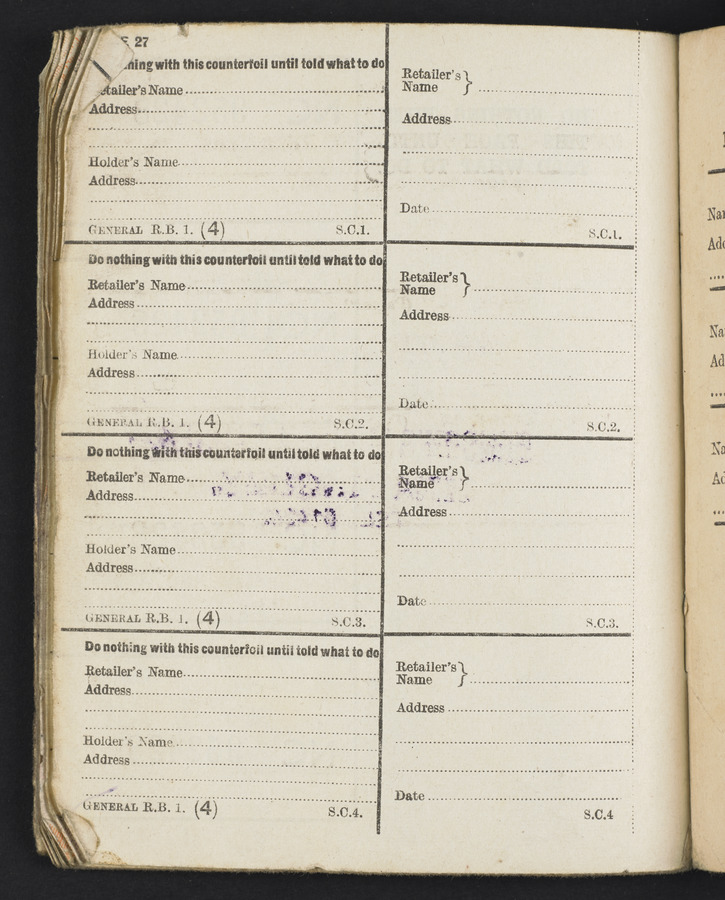 27
ning with this counterfoil until told what to do
etailer's Name
Address
Holder's Name
Address
GENERAL R.B. 1. (4) S.C.1.
Retailer's }
Name
Address
Date
S.C.1.
Do nothing with this counterfoil until told what to do
Retailer's Name
Address
Holder's Name
Address
GENERAL R.B. 1. (4) S.C.2.
Retailer's }
Name
Address
Date
S.C.2.
Do nothing with this counterfoil until told what to do
Retailer's Name
Address
Holder's Name
Address
GENERAL R.B. 1. (4) S.C.3.
Retailer's }
Name
Address
Date
S.C.3.
Do nothing with this counterfoil until told what to do
Retailer's Name
Address
Holder's Name
Address
GENERAL R.B. 1. (4) S.C.4.
Retailer's }
Name
Address
Date
S.C.4